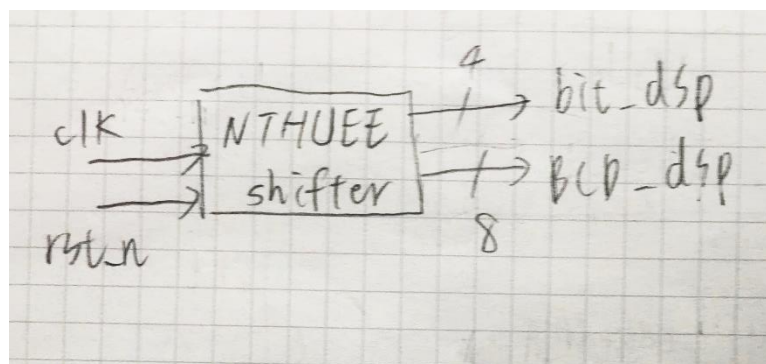 clk
rst_n
NTHUEE
shifter
4
bit_dsp
BCD_dsp
8